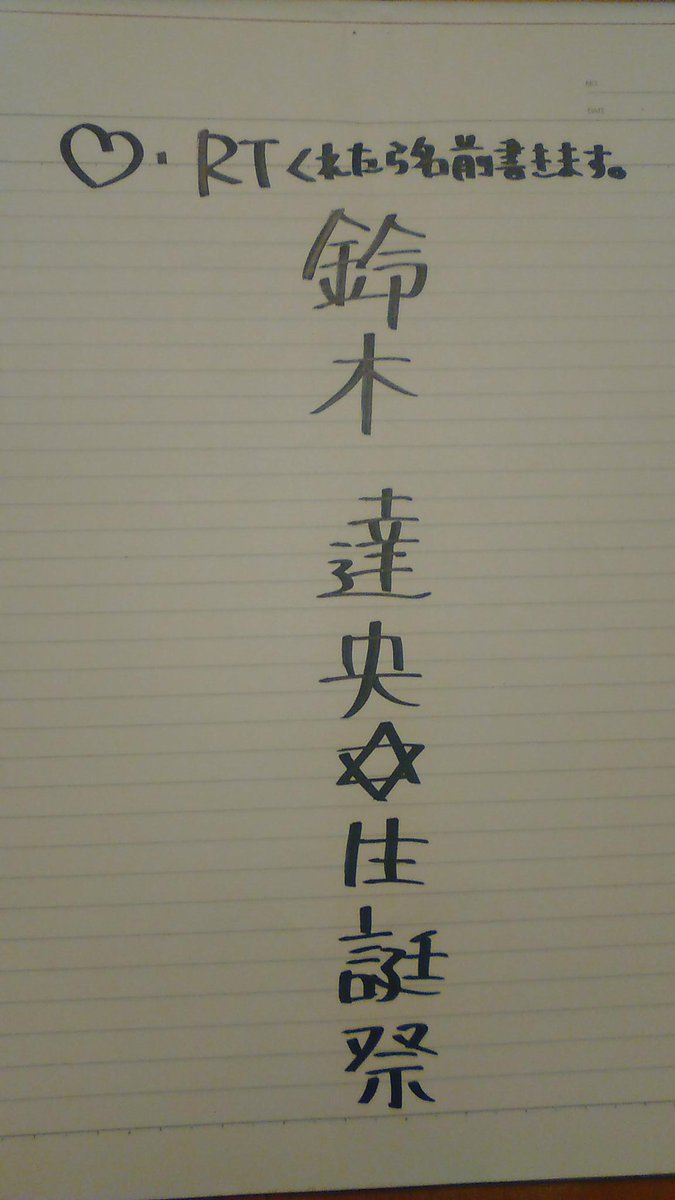 ♡・RTくれたら名前書きます。
NO.
DATE
鈴木 達央✡生誕祭